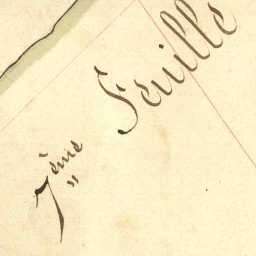 7ème Feuille